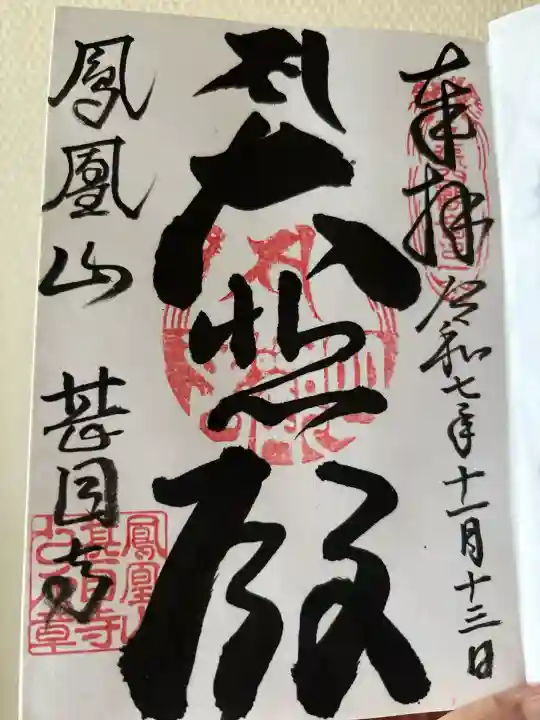 奉拝
令和七年十一月十三日
大悲殿
鳳凰山
甚目寺
鳳凰山甚目寺